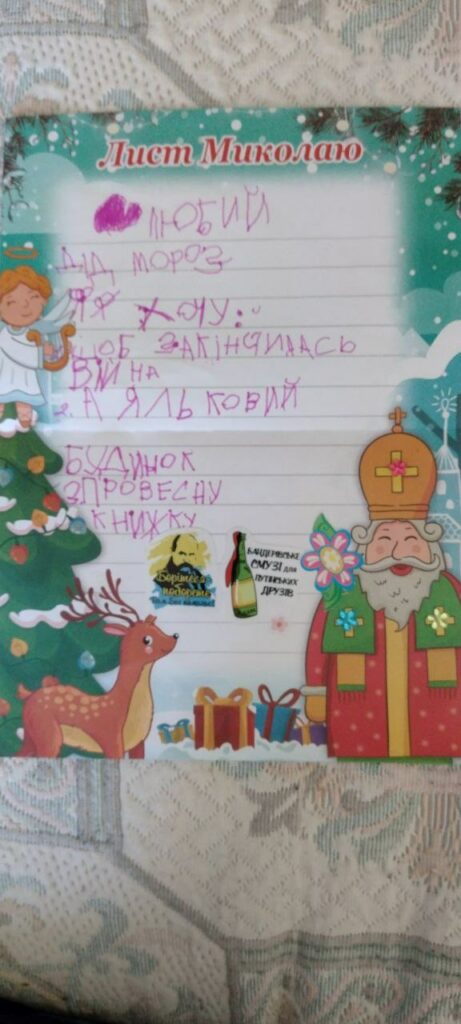 Лист Миколаю
ЛЮБИЙ
ДІД МОРОЗ
Я ХОЧУ:
ЩОБ ЗАКІНЧИЛАСЬ
ВІЙНА
2. А ЯЛЬКОВИЙ
БУДИНОК
ЗПРОВЕСНУ
КНИЖКУ
Борітеся
поборете
БАНДЕРІВСЬКЕ
СМУЗІ ДЛЯ
ПУТІНСЬКИХ
ДРУЗІВ